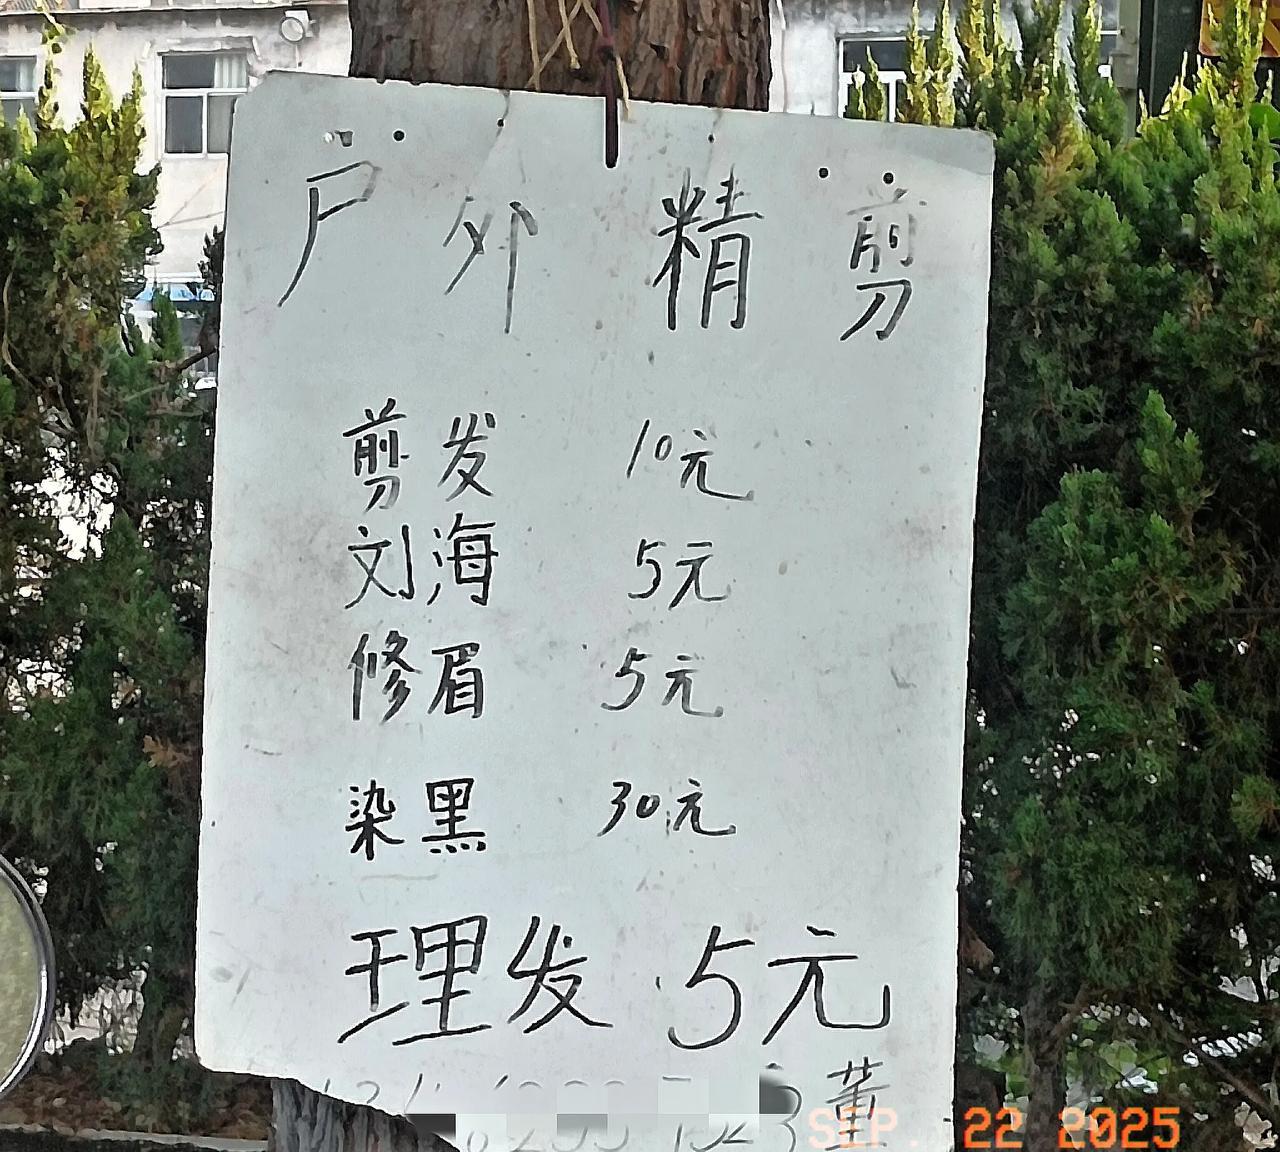 户外精剪
剪发 10元
刘海 5元
修眉 5元
染黑 30元
理发 5元
董
SEP. 22 2025